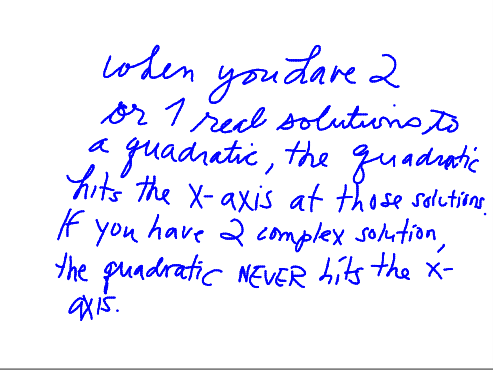 when you have 2
or 1 real solutions to
a quadratic, the quadratic
hits the x-axis at those solutions.
If you have 2 complex solution,
the quadratic NEVER hits the x-
axis.